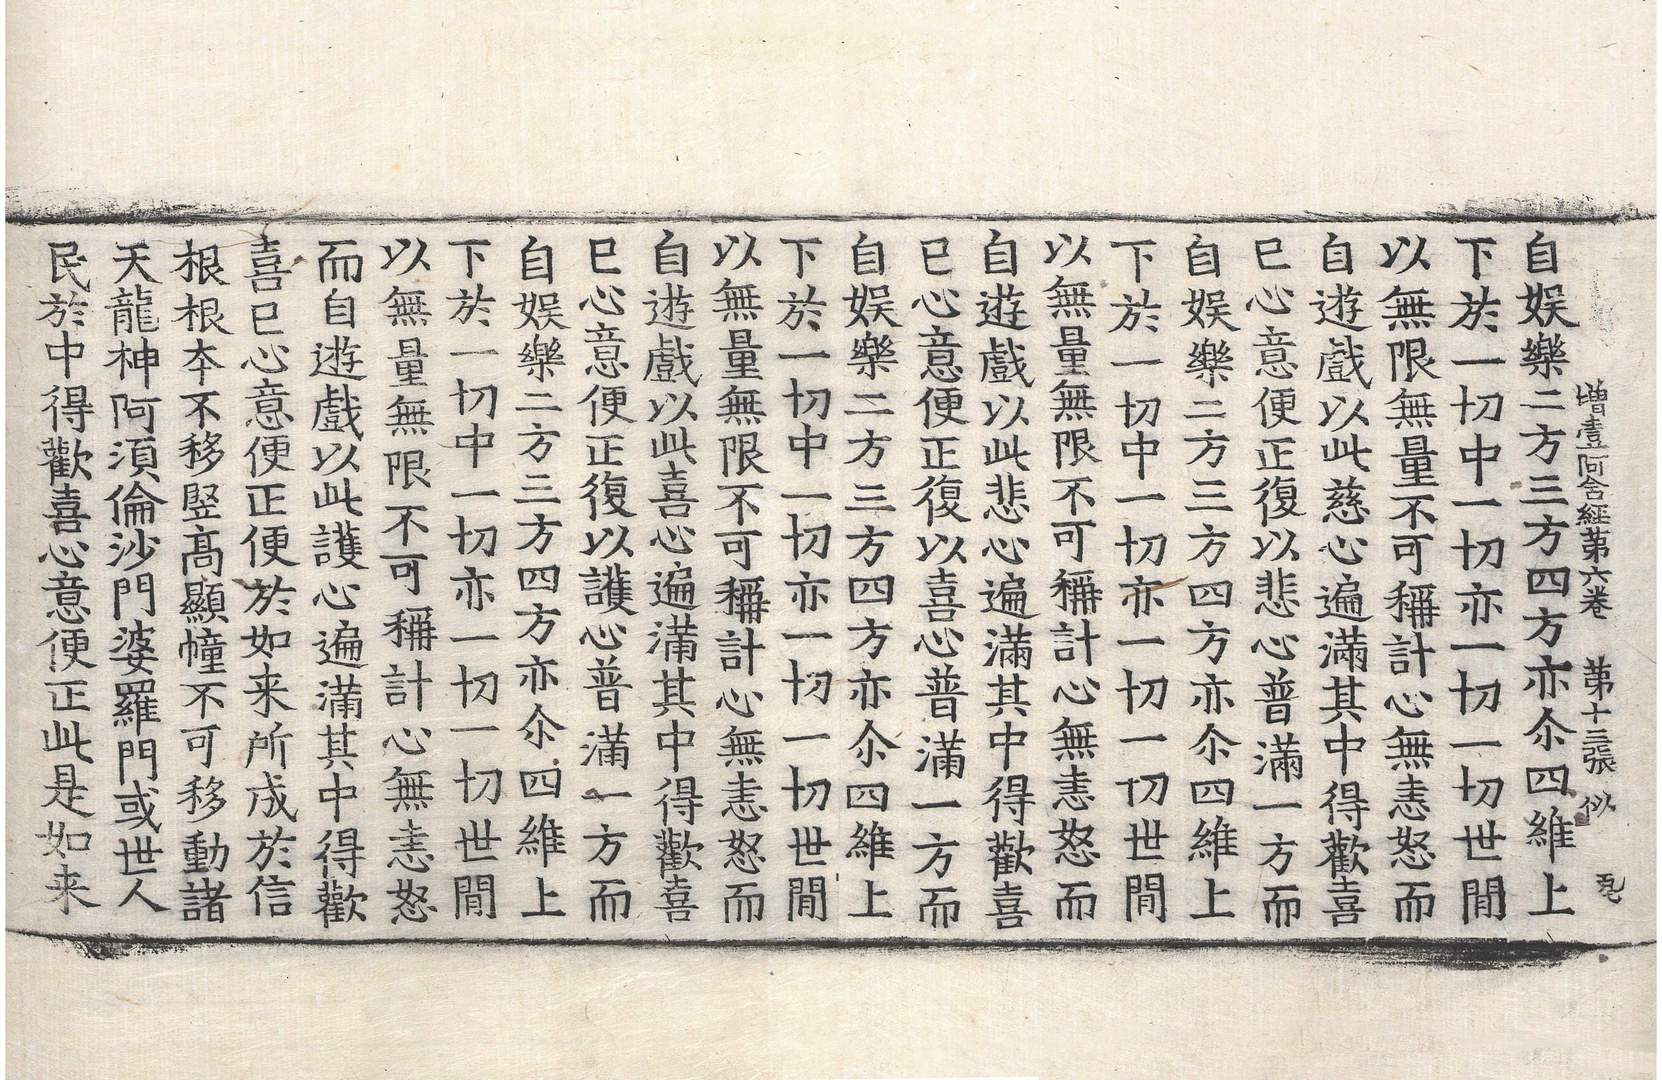 增壹阿含經第六卷 第十三張 似
自娛樂二方三方四方亦尒四維上
下於一切中一切亦一切一切世間
以無限無量不可稱計心無恚怒而
自遊戲以此慈心遍滿其中得歡喜
已心意便正復以悲心普滿一方而
自娛樂二方三方四方亦尒四維上
下於一切中一切亦一切一切世間
以無量無限不可稱計心無恚怒而
自遊戲以此悲心遍滿其中得歡喜
已心意便正復以喜心普滿一方而
自娛樂二方三方四方亦尒四維上
下於一切中一切亦一切一切世間
以無量無限不可稱計心無恚怒而
自遊戲以此喜心遍滿其中得歡喜
已心意便正復以護心普滿一方而
自娛樂二方三方四方亦尒四維上
下於一切中一切亦一切一切世間
以無量無限不可稱計心無恚怒
而自遊戲以此護心遍滿其中得歡
喜已心意便正便於如来所成於信
根根夲不移竪髙顯幢不可移動諸
天龍神阿須倫沙門婆羅門或世人
民於中得歡喜心意便正此是如来